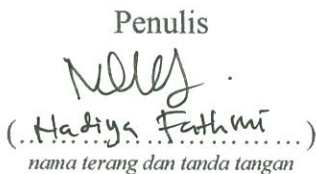 Penulis
(..Hadiya Fathmi..)
nama terang dan tanda tangan